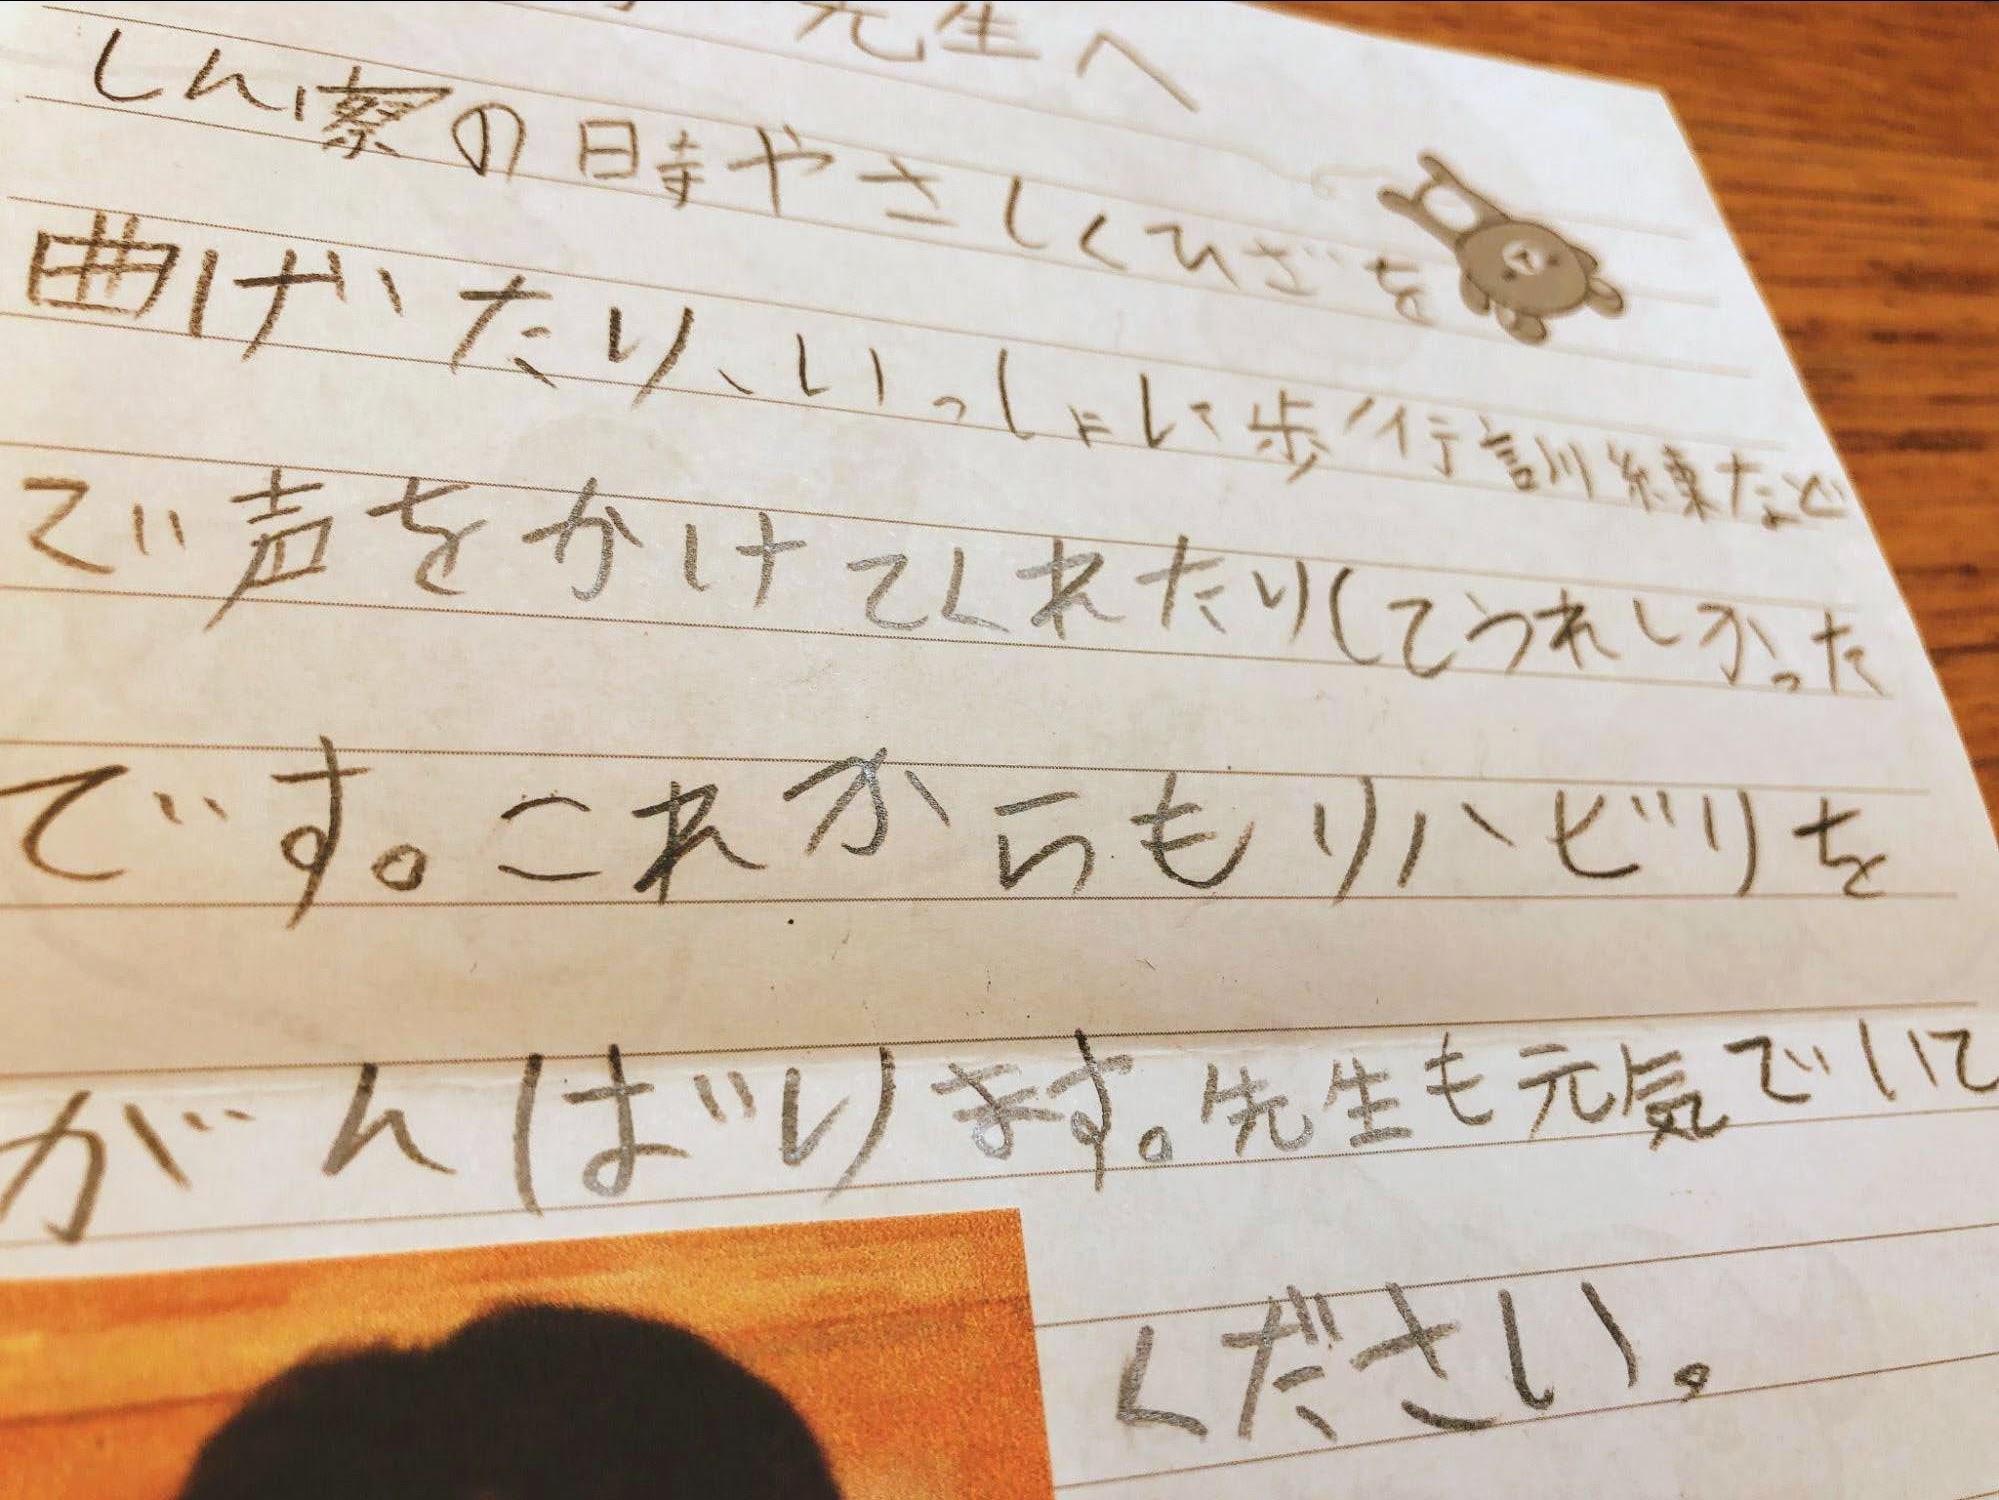 先生へ
しん察の時やさしくひざを
曲げたり、いっしょに歩行訓練など
で声をかけてくれたりしてうれしかった
です。これからもリハビリを
がんばります。先生も元気でいて
ください。